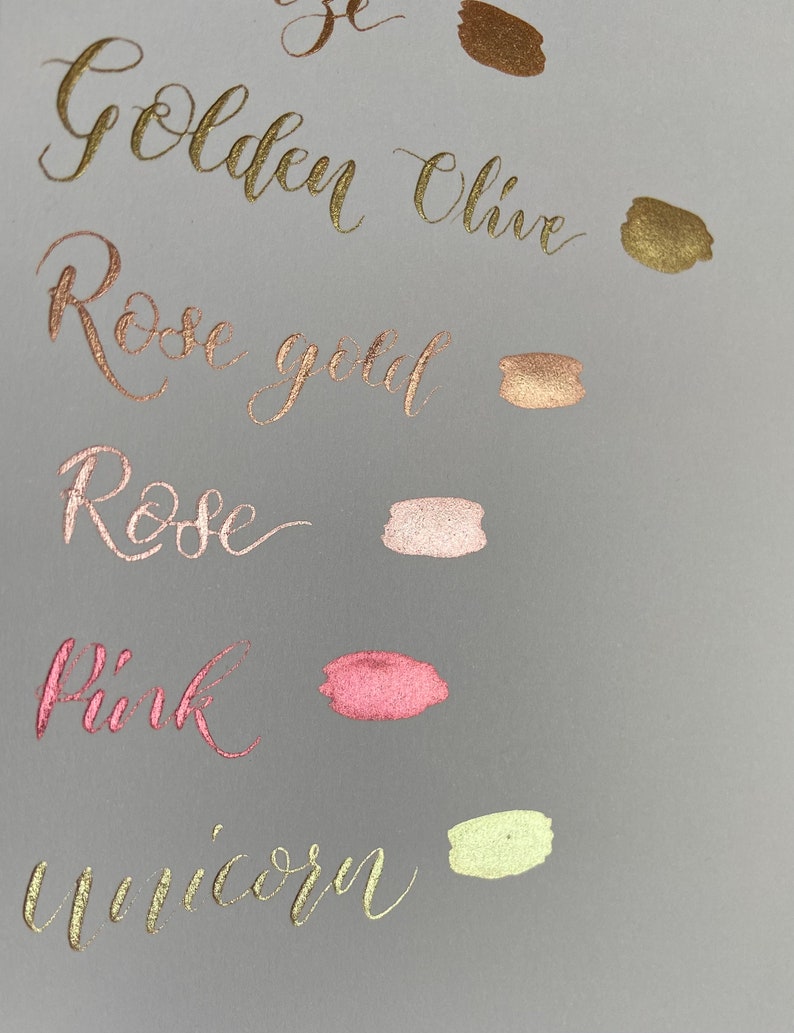 Golden Olive
Rose gold
Rose
Pink
unicorn